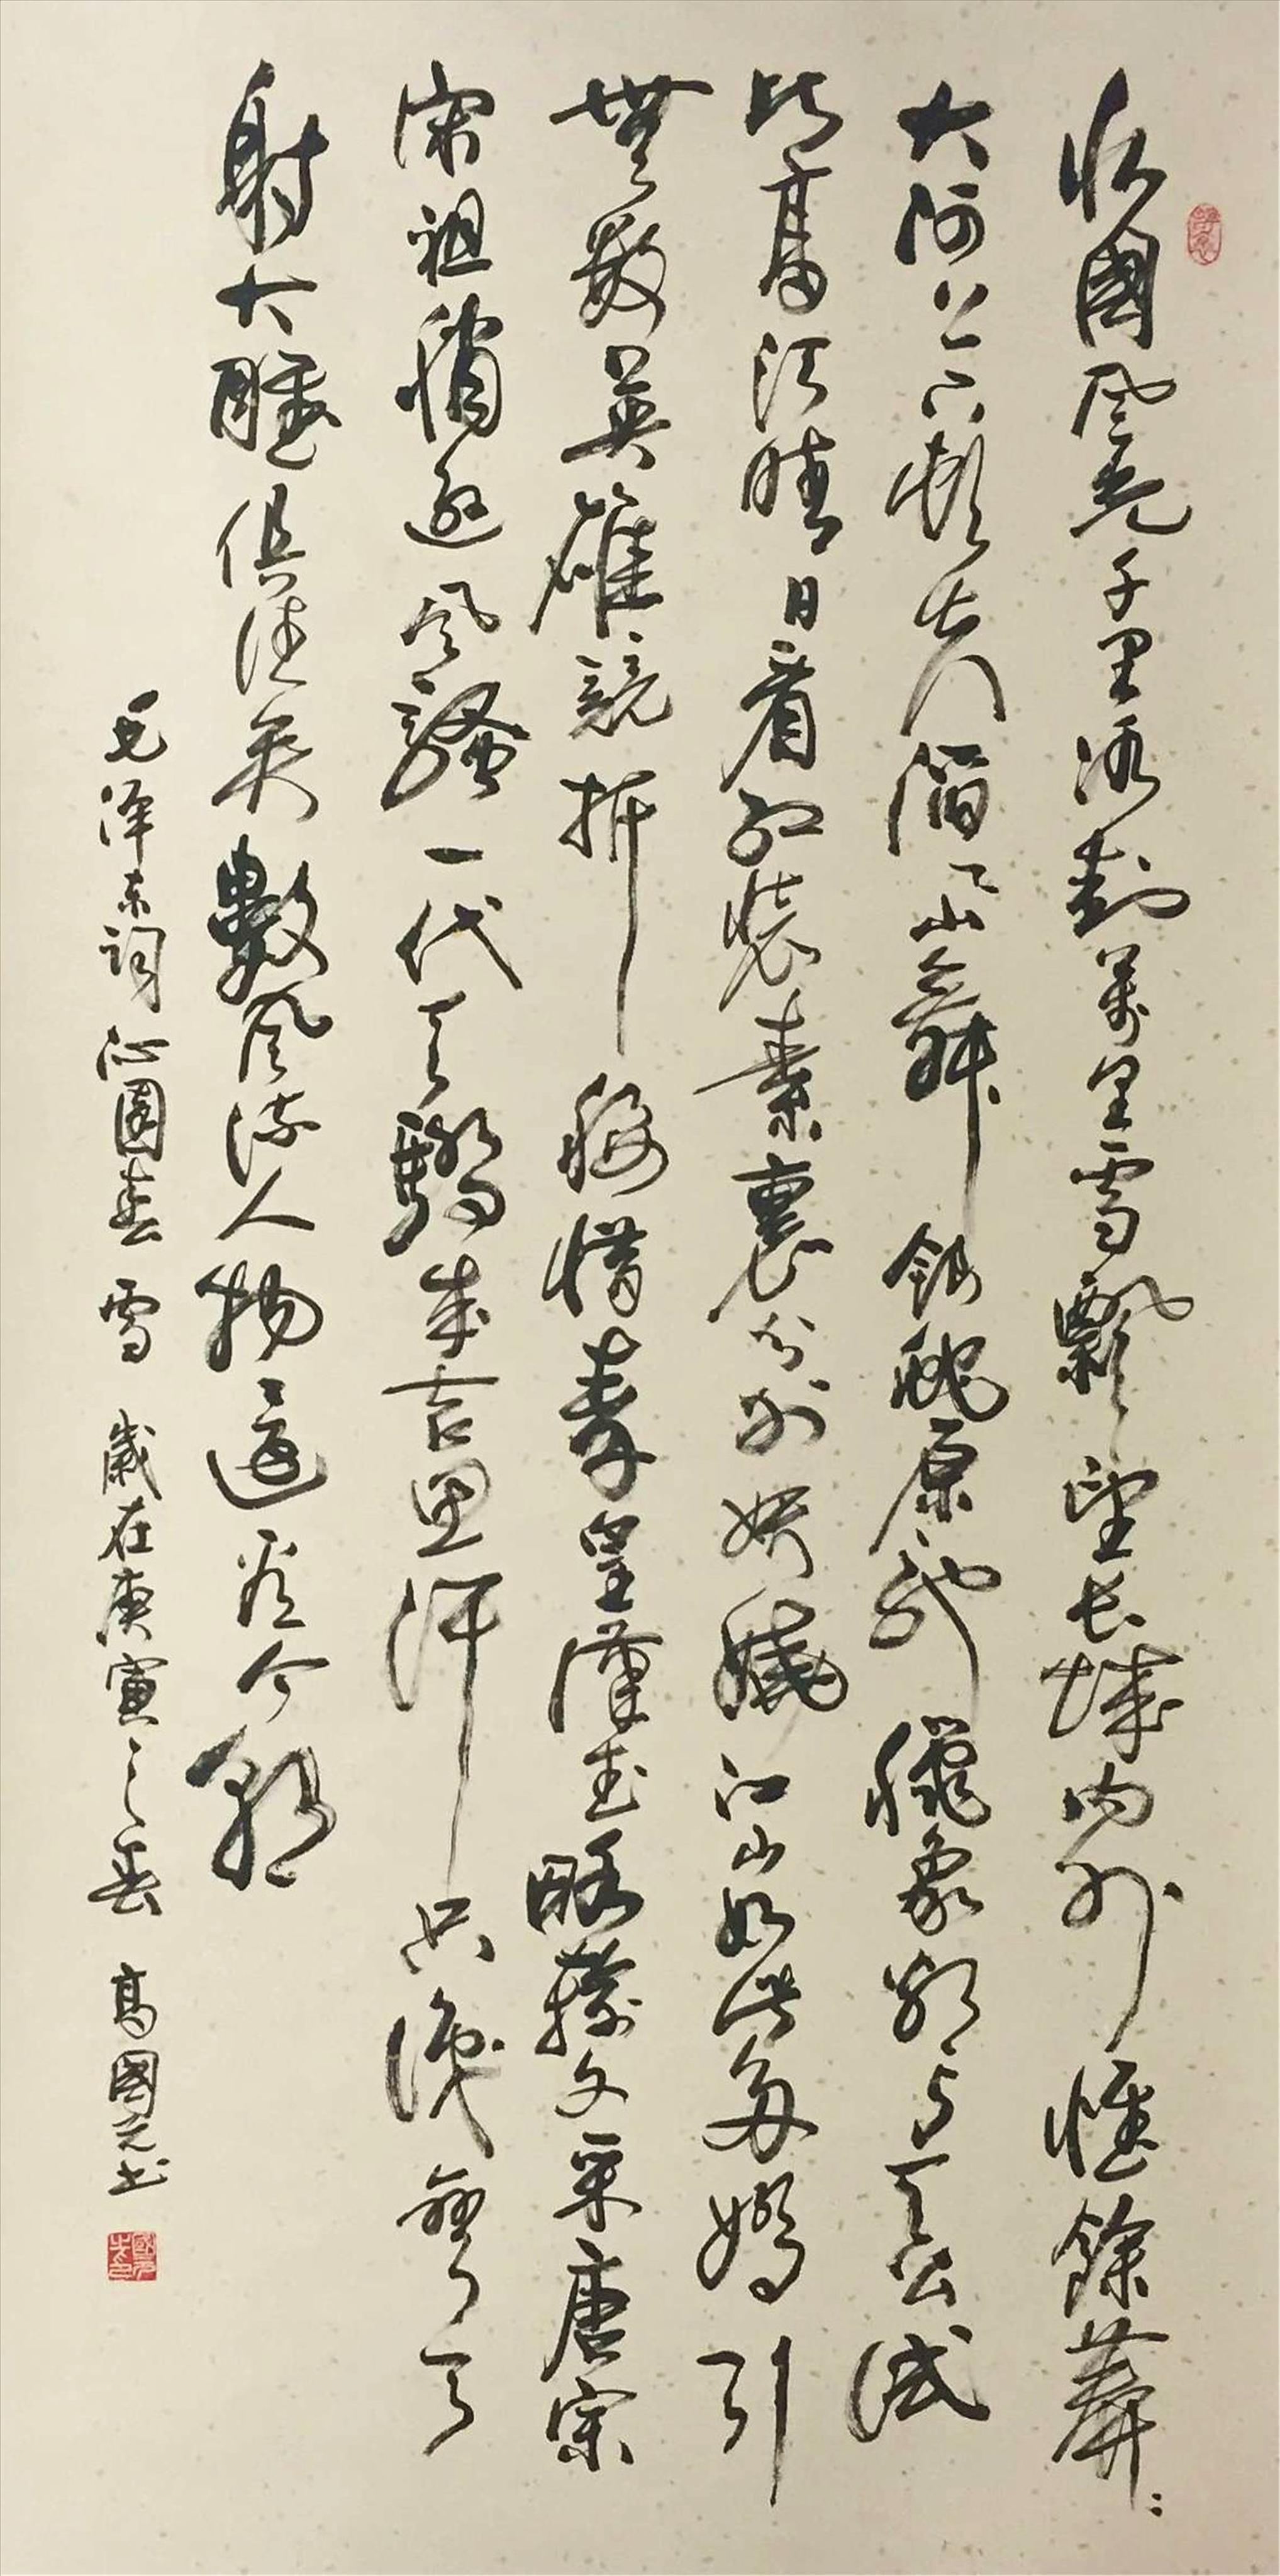 北國風光千里冰封萬里雪飄望長城內外惟餘莽〻
大河上下頓失滔〻山舞銀蛇原馳蠟象欲與天公試
比高須晴日看紅裝素裹分外妖嬈江山如此多嬌引
無數英雄競折腰惜秦皇漢武略輸文采唐宗
宋祖稍遜風騷一代天驕成吉思汗只識彎弓
射大雕俱往矣數風流人物還看今朝
毛泽东词沁園春 雪 歲在庚寅之春 高國元书